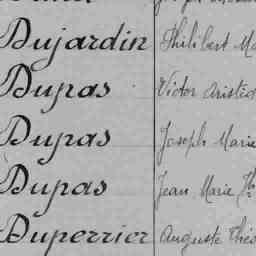 Dujardin Philibert
Dupas Victor Aristid
Dupas Joseph Marie
Dupas Jean Marie
Duperrier Auguste Théo